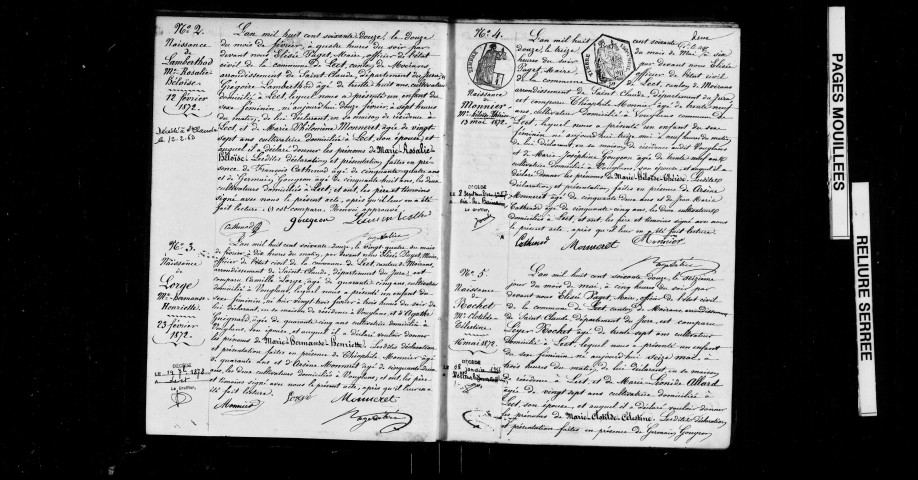 N° 2.
Naissance
de
Lamberthod
Mie Rosalie
Héloïse.
12 février
1872.
L'an mil huit cent soixante douze, le douze
du mois de février, à quatre heures du soir par
devant nous Elisée Paget, Maire, officier de l'état
civil de la commune de Lect, canton de Moirans,
arrondissement de Saint-Claude, département du Jura,
Grégoire Lamberthod âgé de trente huit ans, cultivateur
domicilié à Lect, lequel nous a présenté un enfant du
sexe féminin, ni aujourd'hui douze février, à sept heures
du matin, de lui déclarant en sa maison de résidence à
Lect et de Marie Philomène Monneret âgée de vingt
sept ans cultivatrice domiciliée à Lect, son épouse, et
auquel il a déclaré donner les prénoms de Marie-Rosalie-
Héloïse. Lesdites déclaration et présentation faites en pré-
sence de François Cathenod âgé de cinquante quatre ans
et de Germain Gougeon âgé de cinquante huit ans, les deux
cultivateurs domiciliés à Lect, et ont, les père et témoins
signé avec nous le présent acte, après qu'il leur en a été
fait lecture.
gougeon
Cathenod
N° 3.
Naissance
de
Lorge
Mie Hermance
Henriette.
23 février
1872.
DÉCÉDÉ
L'an mil huit cent soixante douze, le vingt quatre du mois
de février à dix heures du matin, par devant nous Elisée Paget, Maire,
officier de l'état civil de la commune de Lect, canton de Moirans,
arrondissement de Saint-Claude, département du Jura, est
comparu Camille Lorge, âgé de quarante cinq ans, cultivateur
domicilié à Vouglans, lequel nous a présenté un enfant du
sexe féminin, ni hier vingt trois février à trois heures du soir de
lui déclarant, en sa maison de résidence à Vouglans, et d'Agathe
âgée de quarante cinq ans cultivatrice domiciliée à
Vouglans, son épouse, et auquel il a déclaré vouloir donner
les prénoms de Marie-Hermance-Henriette. Lesdites déclaration
et présentation faites en présence de Théophile Monnier âgé
de quarante ans et d'Arsène Monneret âgé de cinquante deux
ans, les deux cultivateurs domiciliés à Vouglans, et ont, les père
et témoins signé avec nous le présent acte, après qu'il leur en a
été fait lecture.
Monnier Lorge Monneret
N° 4.
Naissance
de
Monnier
13 mai 1872.
DÉCÉDÉ
L'an mil huit cent soixante
douze, le treize du mois de Mai, à six
heures du soir par devant nous Elisée
Paget, Maire officier de l'état civil
de la commune de Lect, canton de Moirans
arrondissement de Saint Claude, département du Jura
est comparu Théophile Monnier, âgé de trente neuf
ans cultivateur domicilié à Vouglans commune de
Lect, lequel nous a présenté un enfant du sexe
féminin ni aujourd'hui treize mai à neuf heures du matin
de lui déclarant, en sa maison de résidence audit Vouglans
et de Marie Joséphine Gougeon âgée de trente neuf ans
cultivatrice domiciliée à Vouglans, son épouse, et auquel il a
déclaré donner les prénoms de Marie-Héloïse-Elvésie. Lesdites
déclaration et présentation faites en présence de Arsène
Monneret âgé de cinquante deux ans et de Jean Marie
Cathenod âgé de cinquante cinq ans, les deux cultivateurs
domiciliés à Lect, et ont, les père et témoins signé avec nous
le présent acte, après qu'il leur en a été fait lecture.
Cathenod Monneret Monnier
N° 5.
Naissance
de
Rochet
Mie Clotilde-
Célestine.
16 mai 1872.
DÉCÉDÉ
L'an mil huit cent soixante douze, le seizième
jour du mois de mai, à cinq heures du soir, par
devant nous Elisée Paget, Maire, officier de l'état civil
de la commune de Lect, canton de Moirans arrondissement
de Saint Claude, département du Jura, est comparu
Rochet âgé de trente sept ans cultivateur
domicilié à Lect, lequel nous a présenté un enfant
du sexe féminin ni aujourd'hui seize mai à
trois heures du matin, de lui déclarant en sa maison
de résidence à Lect, et de Marie Léonide Allard
âgée de vingt sept ans cultivatrice domiciliée à
Lect son épouse, et auquel il a déclaré vouloir donner
les prénoms de Marie-Clotilde-Célestine. Lesdites déclaration
et présentation faites en présence de Germain Gougeon
PAGES MOUILLEES
RELIURE SERREE